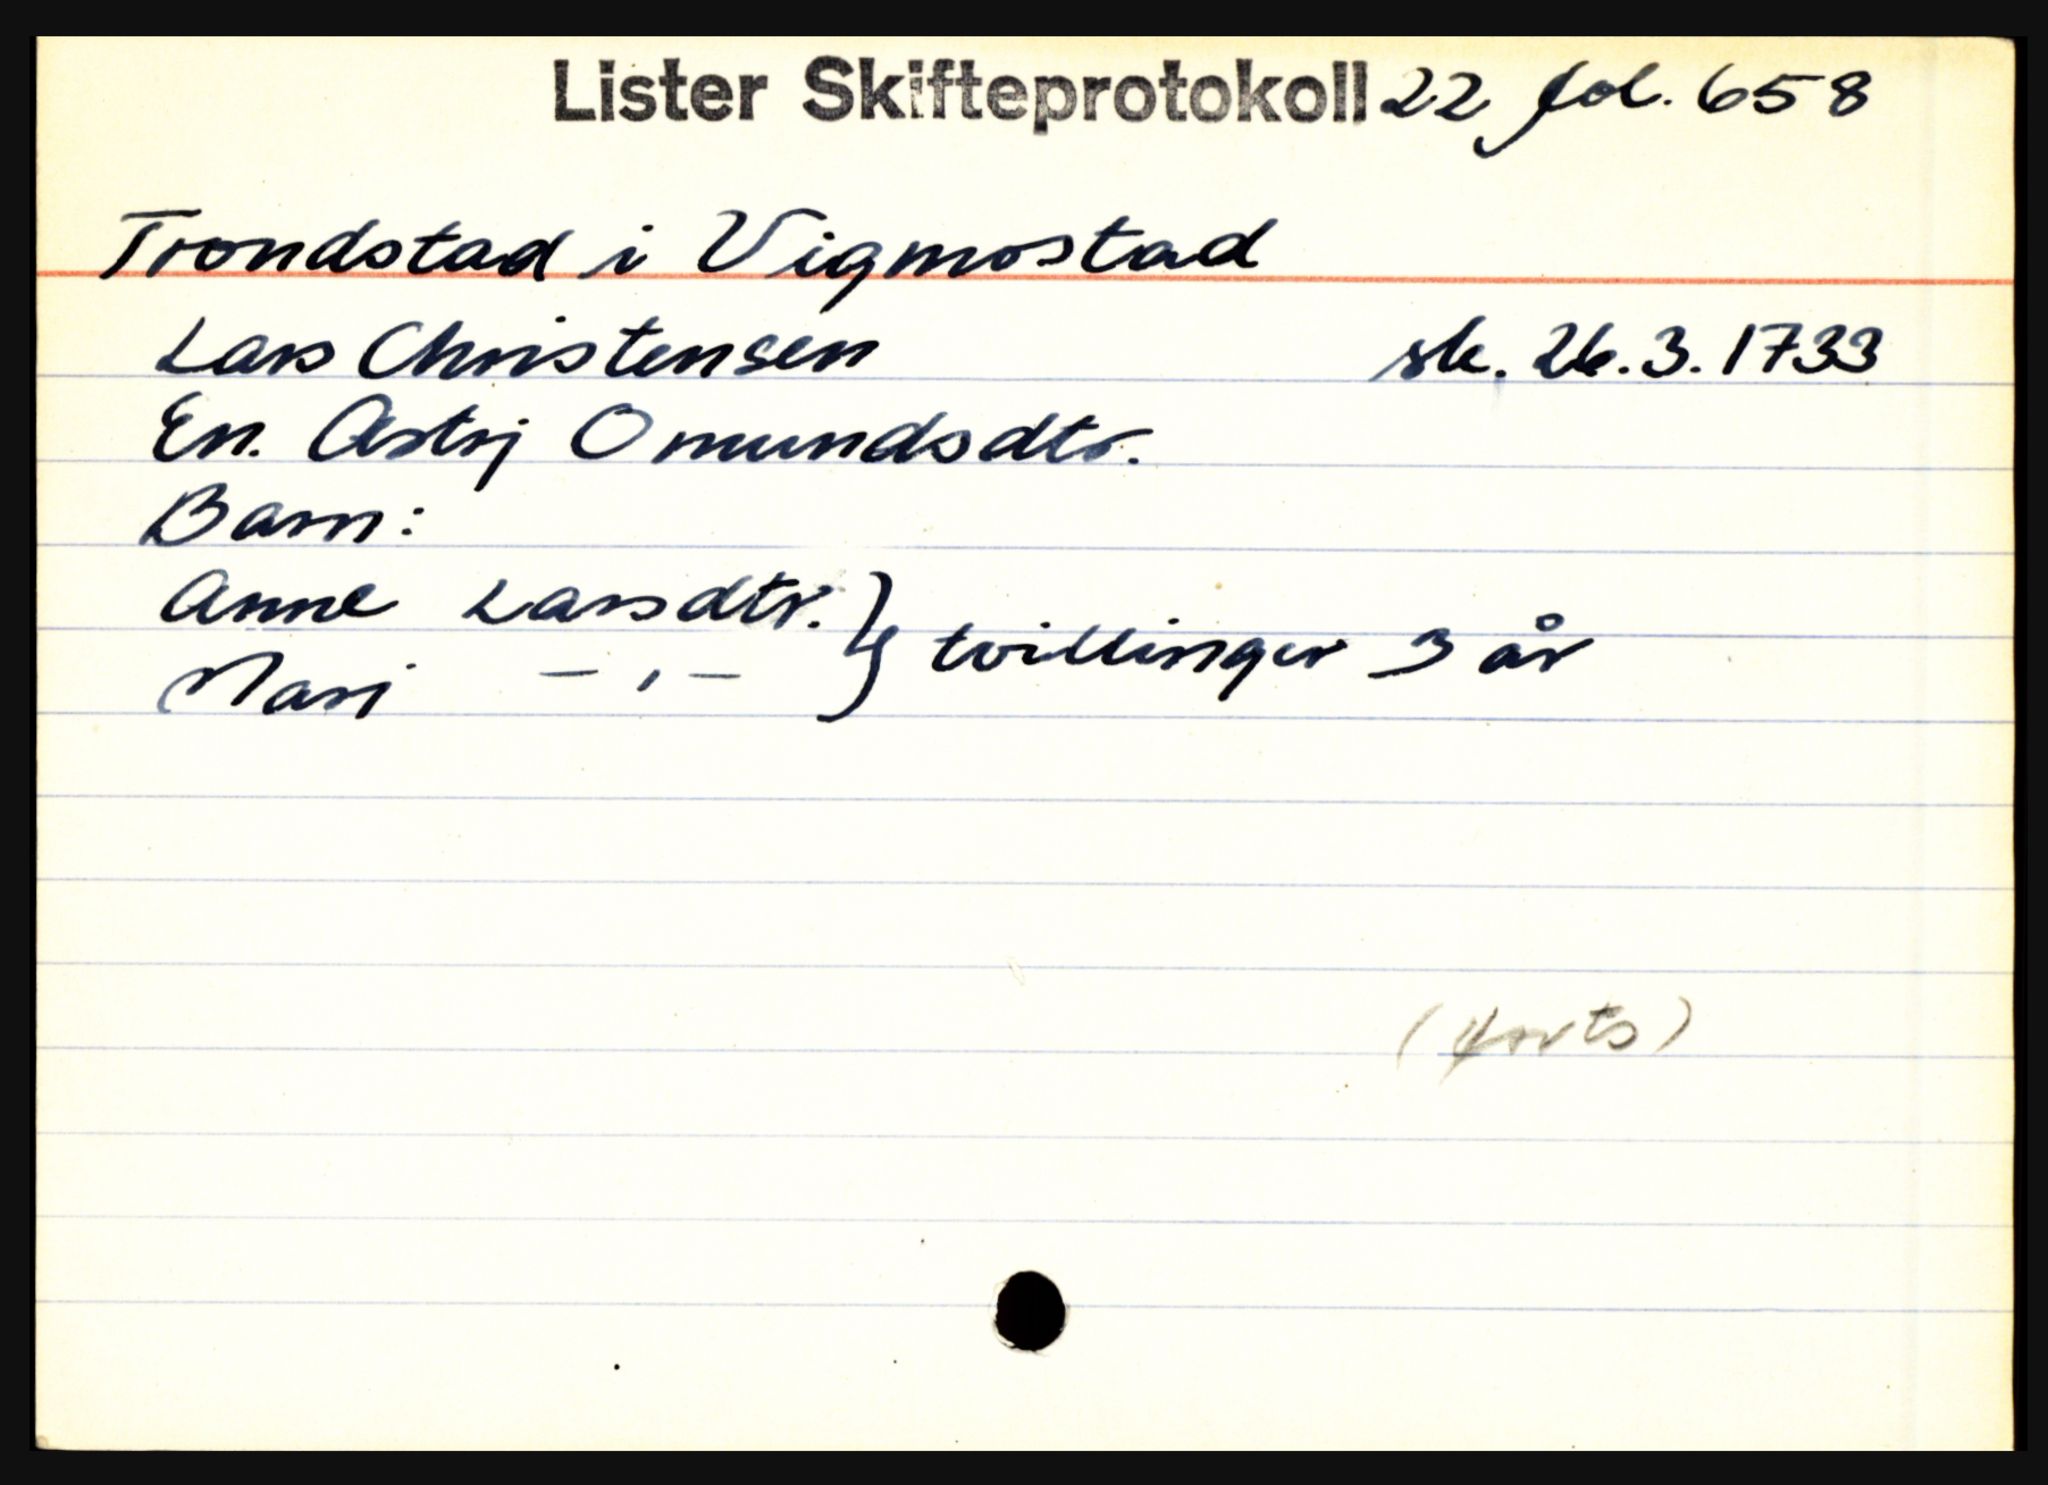 Lister Skifteprotokoll 22 fol. 658
Trondstad i Vigmostad
Lars Christensen sk. 26.3.1733
En. Astrj Omundsdtr.
Barn:
Anne Larsdtr. } tvillinger 3 år
Mari — , — }
(forts)